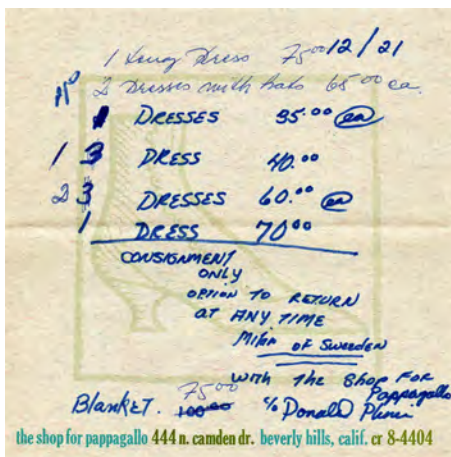 1 Long Dress 75⁰⁰ 12/21
2 Dresses with hats 65⁰⁰ ea.
DRESSES 35.⁰⁰ ea
1 3 DRESS 40.⁰⁰
2 3 DRESSES 60.⁰⁰ ea
1 DRESS 70⁰⁰
CONSIGNMENT
ONLY
OPTION TO RETURN
AT ANY TIME
OF Sweeden
with the Shop FOR
Pappagallo
75⁰⁰
BlankeT. 100⁰⁰ c/o Donald
the shop for pappagallo 444 n. camden dr. beverly hills, calif. cr 8-4404